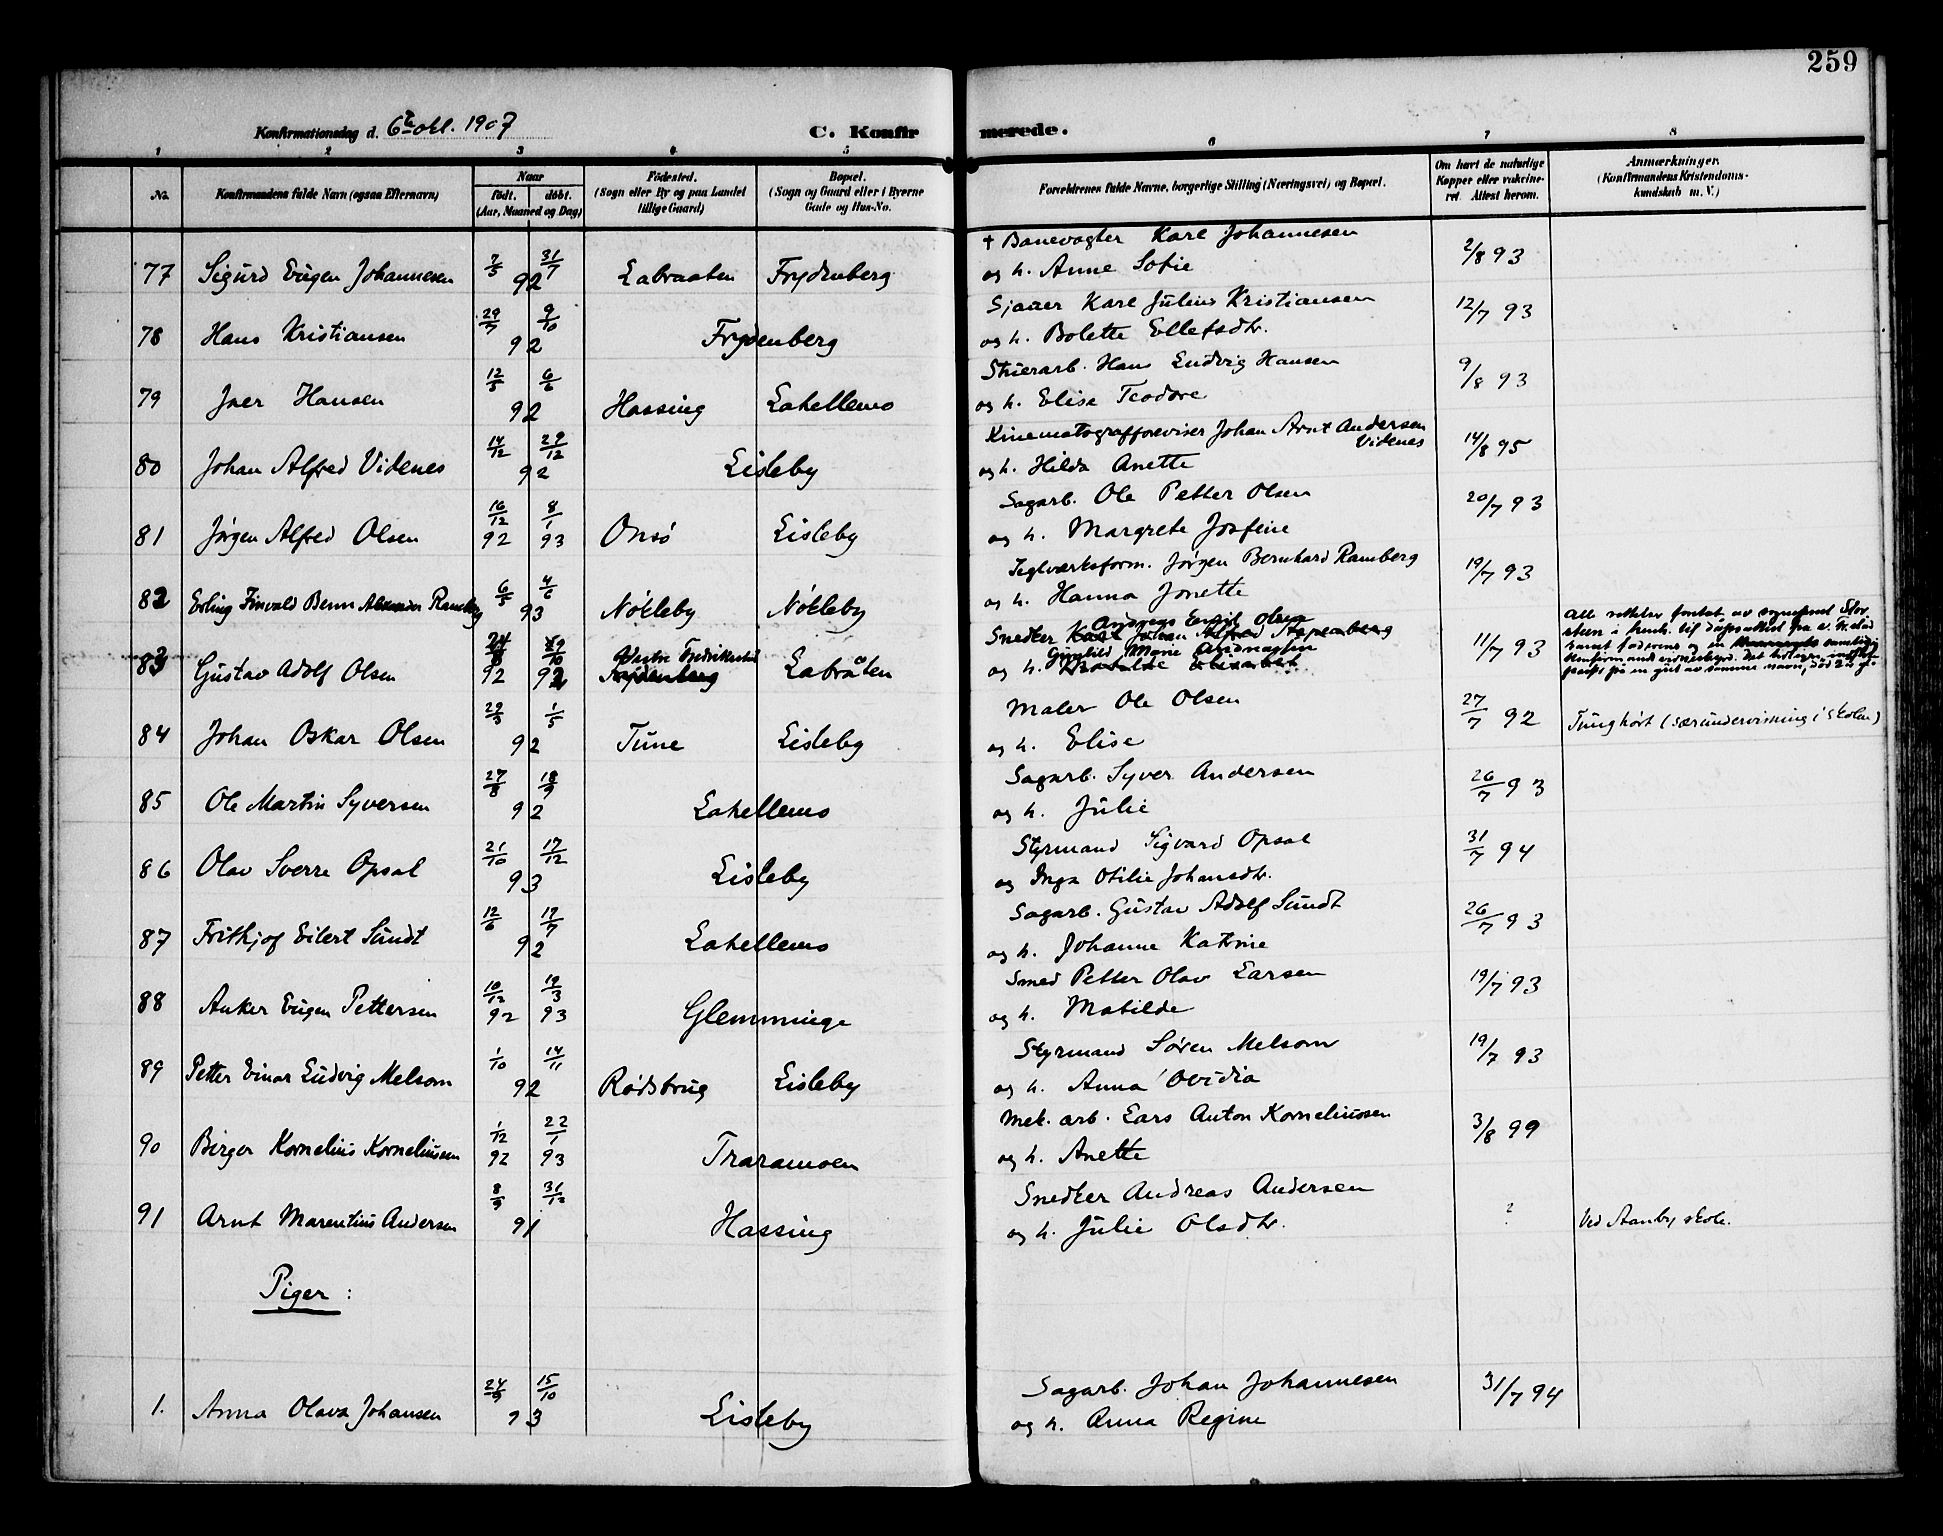 259
Konfirmationsdag d. 6te okt. 1907
C. Konfirmerede.
1 2 3 4 5 6 7 8
No.
Konfirmandens fulde Navn (ogsaa Efternavn)
Naar
födt. döbt.
(Aar, Maaned og Dag)
Födested.
(Sogn eller By og paa Landet
tillige Gaard)
Bopæl.
(Sogn og Gaard eller i Byerne
Gade og Hus-No.
Forældrenes fulde Navne, borgerlige Stilling (Næringsvei) og Bopæl.
Om havt de naturlige
Kopper eller vakcine-
ret Attest herom.
Anmærkninger.
(Konfirmandens Kristendoms-
kundskab m. V.)
† Banevogter Karl Johannesen
77 Sigurd Eugen Johannesen 7/5 31/7 92 Labraaten Frydenberg og h. Anne Sofie 2/8 93
Sjauer Karl Julius Kristiansen
78 Hans Kristiansen 29/7 9/10 92 Frydenberg og h. Bolette Ellefsdtr. 12/7 93
Stuerarb. Hans Ludvig Hansen
79 Iver Hansen 12/5 6/6 92 Hassing Lahellemo og h. Elise Teodore 9/8 93
Kinematografforeviser Johan Arnt Andersen
Videnes
80 Johan Alfred Videnes 14/12 29/12 92 Lisleby og h. Hilda Anette 14/8 95
Sagarb. Ole Petter Olsen
81 Jörgen Alfred Olsen 16/12 92 8/1 93 Onsö Lisleby og h. Margrete Josefine 20/7 93
Teglværksform. Jörgen Bernhard Ramberg
82 Erling Finvald Benn Alexander Ramberg 6/5 4/6 93 Nökleby Nökleby og h. Hanna Jonette 19/7 93
Andreas Emil Olsen
Snedker Karl Johan Alfred
Gunhild Marie
83 Gustav Adolf Olsen 92 92 Vestre Fredrikstad Frydenberg Labråten og h. 11/7 93
Maler Ole Olsen
84 Johan Oskar Olsen 29/3 1/5 92 Tune Lisleby og h. Elise 27/7 92 Tunghört (særundervisning i skolen)
Sagarb. Syver Andersen
85 Ole Martin Syversen 27/8 18/9 92 Lahellemo og h. Julie 26/7 93
Styrmand Sigvard Opsal
86 Olav Sverre Opsal 21/10 17/12 93 Lisleby og Inga Otilie Johansdtr. 31/7 94
Sagarb. Gustav Adolf Sundt
87 Fritkjof Eilert Sundt 12/6 17/7 92 Lahellemo og h. Johanne Katrine 26/7 93
Smed Petter Olav Larsen
88 Anker Eugen Pettersen 10/12 92 19/3 93 Glemminge og h. Matilde 19/7 93
Styrmand Sören Melsom
89 Petter Einar Ludvig Melsom 1/10 14/11 92 Rödsbrug Lisleby og h. Anna Ovidia 19/7 93
Mek. arb. Lars Anton Korneliussen
90 Birger Kornelius Korneliussen 1/12 92 22/1 93 Traramoen og h. Anette 3/8 99
Snedker Andreas Andersen
91 Arnt Marentius Andersen 8/9 31/12 91 Hassing og h. Julie Olsdtr. ? Ved Aanby skole.
Piger:
Sagarb. Johan Johannesen
1. Anna Olava Johansen 24/9 15/10 93 Lisleby og h. Anna Regine 31/7 94